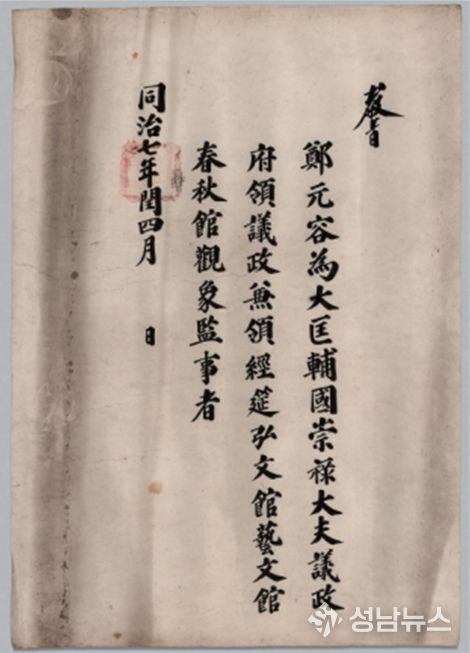 教旨
鄭元容爲大匡輔國崇祿大夫議政
府領議政兼領經筵弘文館藝文館
春秋館觀象監事者
同治七年閏四月 日
성남뉴스